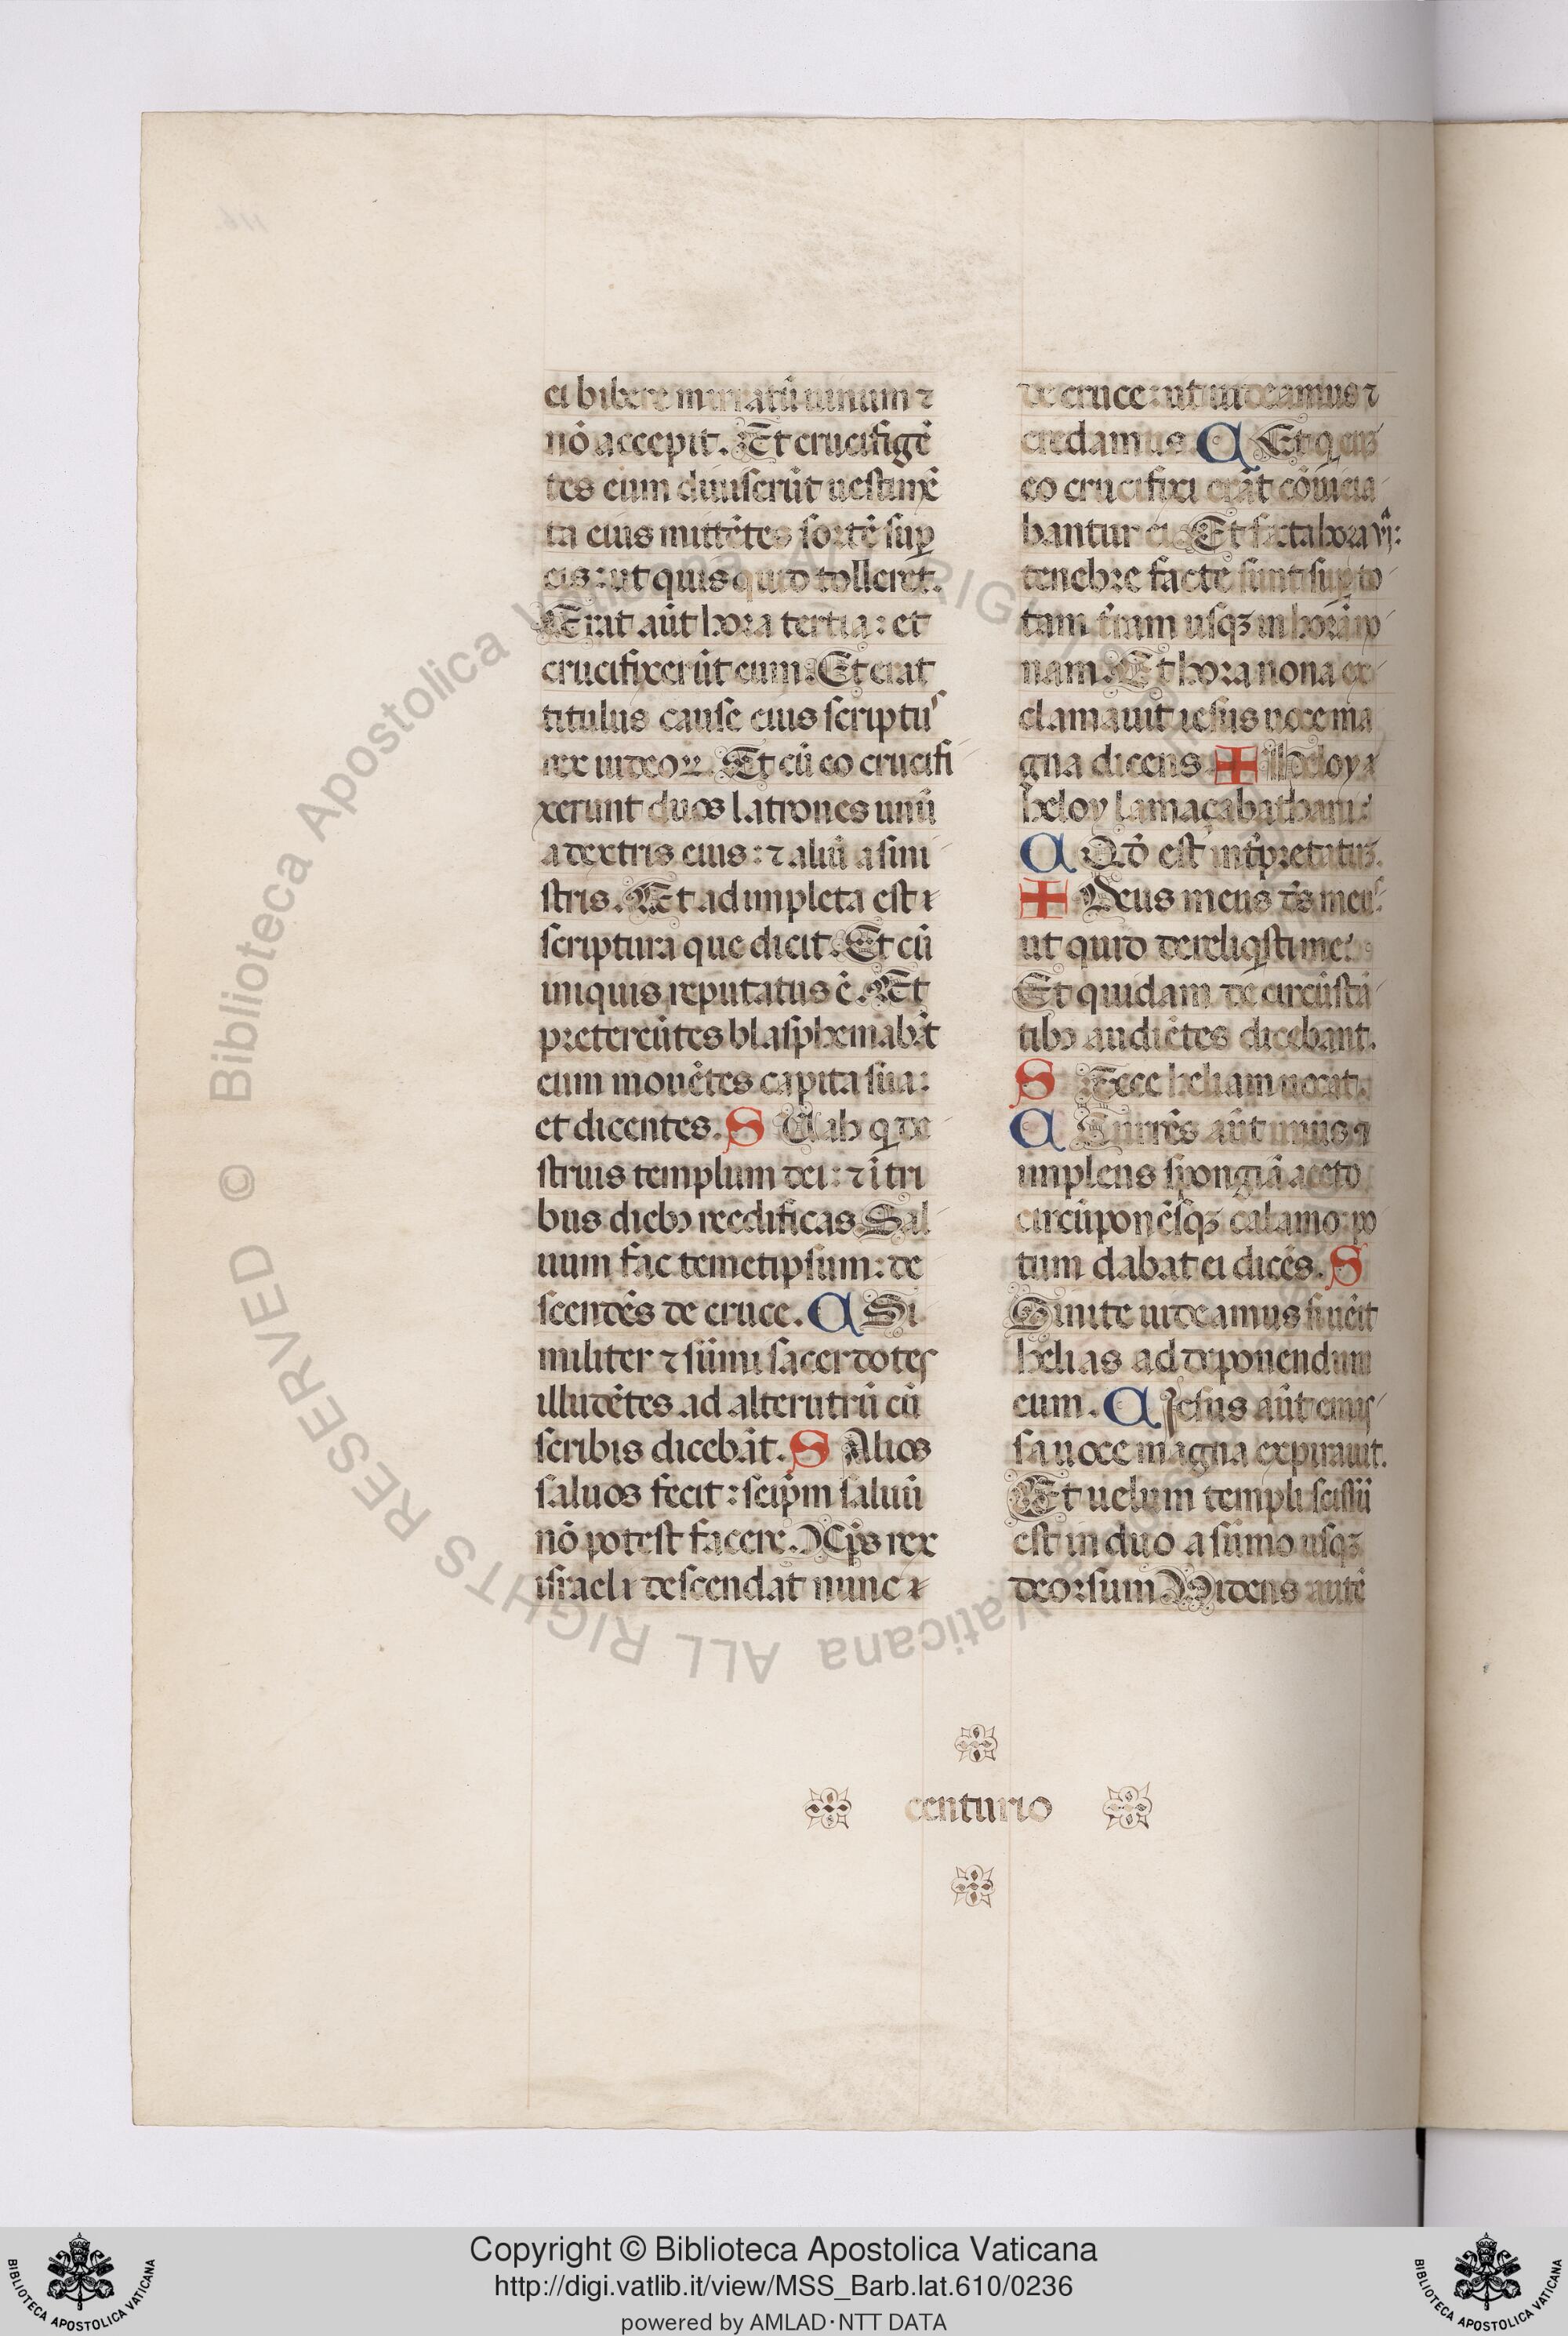 ei bibere mirratū uinum ⁊
nō accepit. Et crucifigē
tes eum diuiserūt uestimē
ta eius mittētes sortē suꝑ
eis: ut quis quid tolleret.
Erat aūt hora tertia: et
crucifixerūt eum. Et erat
titulus cause eius scriptuˢ
rex iudeoꝝ. Et cū eo crucifi
xerunt duos latrones unū
a dextris eius: ⁊ aliū a sini
stris. Et adimpleta est ⁊
scriptura que dicit. Et cū
iniquis reputatus ē. Et
pretereūtes blasphemabāt
eum mouētes capita sua:
et dicentes. S Uah q de
struis templum dei: ⁊ ī tri
bus dieb⁹ reedificas. Sal
uum fac temetipsum: de
scendēs de cruce. C Si
militer ⁊ sūmi sacerdotes
illudētes ad alterutrū cū
scribis dicebāt. S Alios
saluos fecit: seip̄m saluū
nō potest facere. Xp̄s rex
israel ⁊ descendat nunc ⁊
de cruce: ut uideamus ⁊
credamus. C Et q cuȝ
eo crucifixi erāt cōuicia
bantur ei. Et facta hora vjᵃ:
tenebre facte sunt suꝑ to
tam t̄ram usqꝫ in horā
nam. Et hora nona ex
clamauit iesus uoce ma
gna dicens ✚ heloy
heloy lamaçabathani:
C Qd̄ est int̄pretatuȝ.
✚ Deus meus ds̄ meuˢ
ut quid dereliqsti me.
Et quidam de circūstā
tib⁹ audiētes dicebant.
S Ecce heliam uocat.
C Currēs aūt unus ⁊
implens spongiā aceto
circūponēsqꝫ calamo po
tum dabat ei dicēs. S
Sinite uideamus si ueīt
helias ad deponendum
eum. C Jesus aūt emis
sa uoce magna expirauit.
Et uelum templi scissū
est in duo a sūmo usqꝫ
deorsum. Uidens autē
centurio
© Biblioteca Apostolica Vaticana ALL RIGHTS RESERVED
Copyright © Biblioteca Apostolica Vaticana
http://digi.vatlib.it/view/MSS_Barb.lat.610/0236
powered by AMLAD·NTT DATA
BIBLIOTECA APOSTOLICA VATICANA
BIBLIOTECA APOSTOLICA VATICANA